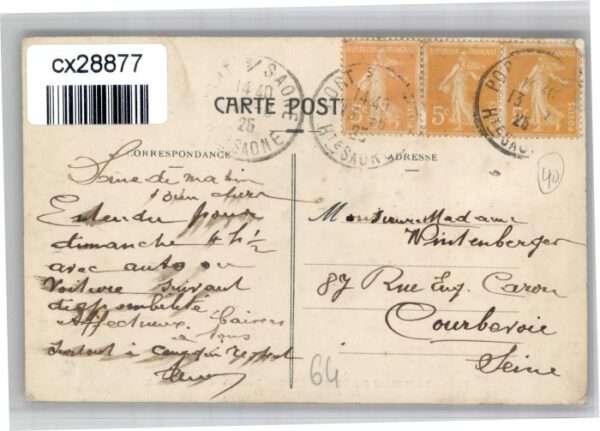 cx28877
CARTE POSTALE
CORRESPONDANCE
ADRESSE
PORT S/ SAONE
14 40
25
HTE SAONE
5c
5c
POSTES
40
bien chers
Entendu pour
dimanche 4 h 1/2
avec auto ou
Voiture suivant
disponibilité
Affectueux baisers
à tous
Surtout à
Monsieur Madame
Wintenberger
87 Rue Eug. Caron
Courbevoie
Seine
64